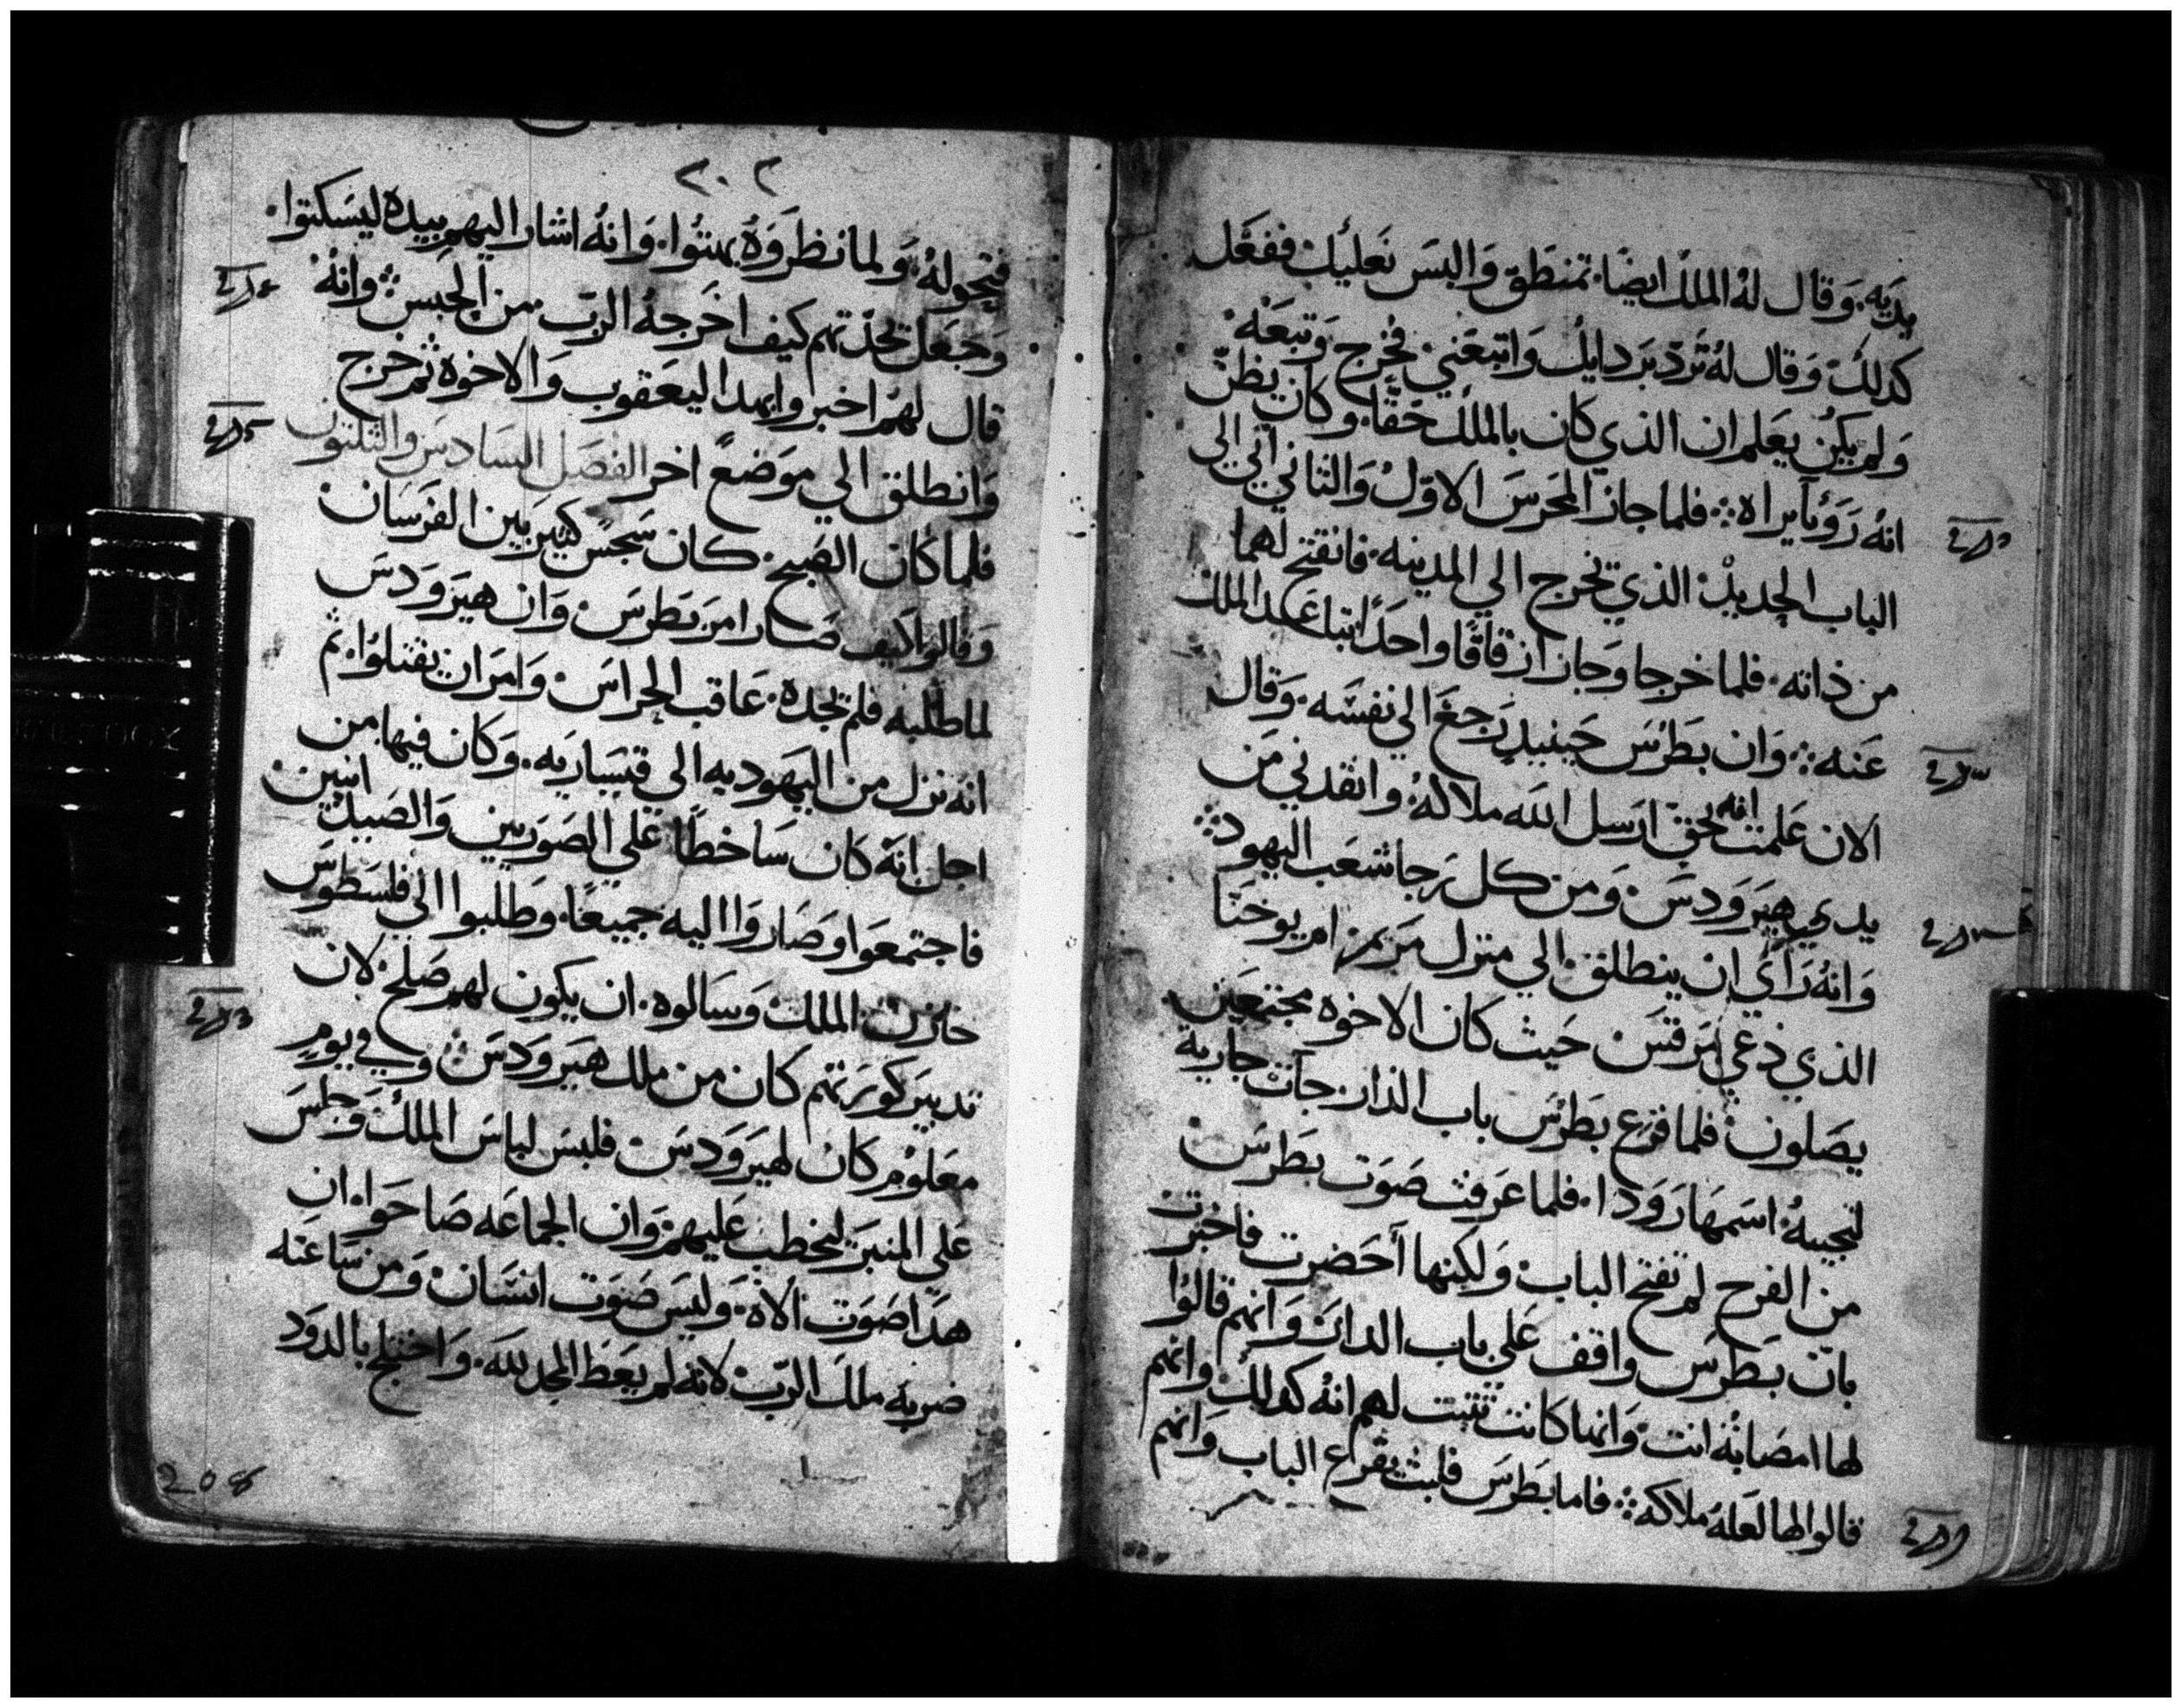 يديه. وقال له الملك ايضًا. تمنطق والبس نعليك ففعل
كدلك وقال له تردّ بردايك واتبعني فخرج وتبعه.
ولم يكن يعلم ان الذي كان بالملك حقًا. وكان يظن
انه رؤيا يراه ⁘ فلما جاز المحرس الاول والثاني اتي الى
الباب الحديد الذي يخرج الي المدينه. فانفتح لهما
من ذاته. فلما خرجا وجازا زقاقًا واحدًا تباعد الملك
عنه ⁘ وان بطرس حينيدٍ رجع الي نفسه. وقال
الان علمت انه بحق ارسل الله ملاكه. وانقدني من
يدي هيرودس. ومن كل رجا شعب اليهود ⁘
وانه رأي ان ينطلق الي منزل مريم ام يوحنا
الذي دعي مرقس حيث كان الاخوه مجتمعين
يصلون فلما قرع بطرس باب الدار جأت جارية
لتجيبه اسمها رودا. فلما عرفت صوت بطرس
من الفرح لم تفتح الباب ولكنها أحضرت فاخبرت
بان بطرس واقف علي باب الدار. وانهم قالوا
لها امصابه انت. وانما كانت تتبت لهم انه كدلك وانهم
قالوا لها لعله ملاكه ⁘ فاما بطرس فلبث يقرع الباب وانهم
٢٠٢
فتحوا له. ولما نظروه بهتوا. وانه اشار اليهم بيده ليسكتوا.
وجعل يحدّثهم كيف اخرجه الرب من الحبس ⁘ وانه
قال لهم اخبروا بهدا ليعقوب والاخوه ثم خرج
وانطلق الي موضعٍ اخر الفصل السادس والثلثون
فلما كان الصبح. كان سجس كبير بين الفرسان
وقالوا كيف صار امر بطرس. وان هيرودس
لما طلبه فلم يجده. عاقب الحراس. وامر ان يقتلوا. ثم
انه نزل من اليهوديه الى قيساريه. وكان فيها من
اجل انه كان ساخطًا علي الصوريين والصيدانيين.
فاجتمعوا وصاروا اليه جميعًا. وطلبوا الي فلسطوس
خازن الملك وسالوه. ان يكون لهم صلح لان
تدبير كورتهم كان من ملك هيرودس ⁘ وفي يومٍ
معلوم كان لهيرودس فلبس لباس الملك وجلس
علي المنبر ليخطب عليهم وان الجماعه صاحوا. ان
هدا صوت الاه. وليس صوت انسان ومن ساعته
ضربه ملك الرب لانه لم يعط المجد لله. واختلج بالدود
208